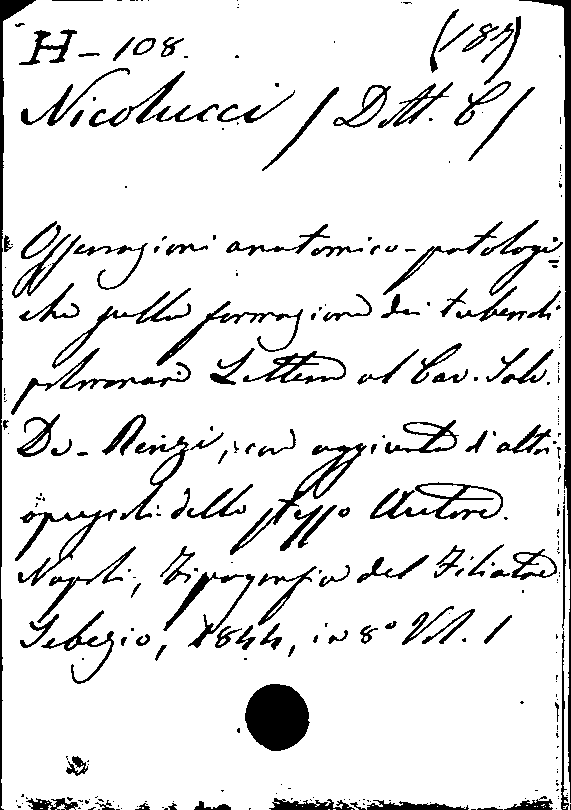 H - 108. (187)
Nicolucci / Dott. G /
Osservazioni anatomico-patologi=
che sulla formazione dei tubercoli
polmonari Lettera al Cav. Salv.
De-Renzi, con aggiunta d'altri
opuscoli dello stesso Autore.
Napoli, Tipografia del Filiatre
Sebezio, 1844, in 8° Vol. 1